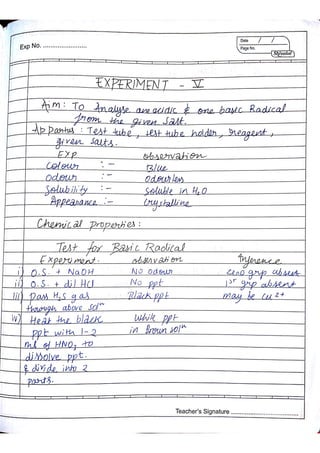 Date / /
Page No.
Exp No. ........................
EXPERIMENT - V
Aim: To Analyse one acidic & one basic Radical
from the given Salt.
Appartus: Test tube, test tube holder, reagent,
given salts.
EXP. observation
Colour :- Blue
odour :- Odourless
Solubility :- Soluble in H2O
Appearance :- Crystalline
Chemical properties:
Test for Basic Radical
Experiment. observation Inference
i) O.S. + NaOH No odour zero grp absent
ii) O.S. + dil HCl No ppt Ist grp absent
iii) Pass H2S gas Black ppt may be cu2+
through above soln
iv) Heat the black White ppt
ppt with 1-2 in brown soln
ml of HNO3 to
dissolve ppt.
& divide into 2
parts.
Teacher's Signature ........................